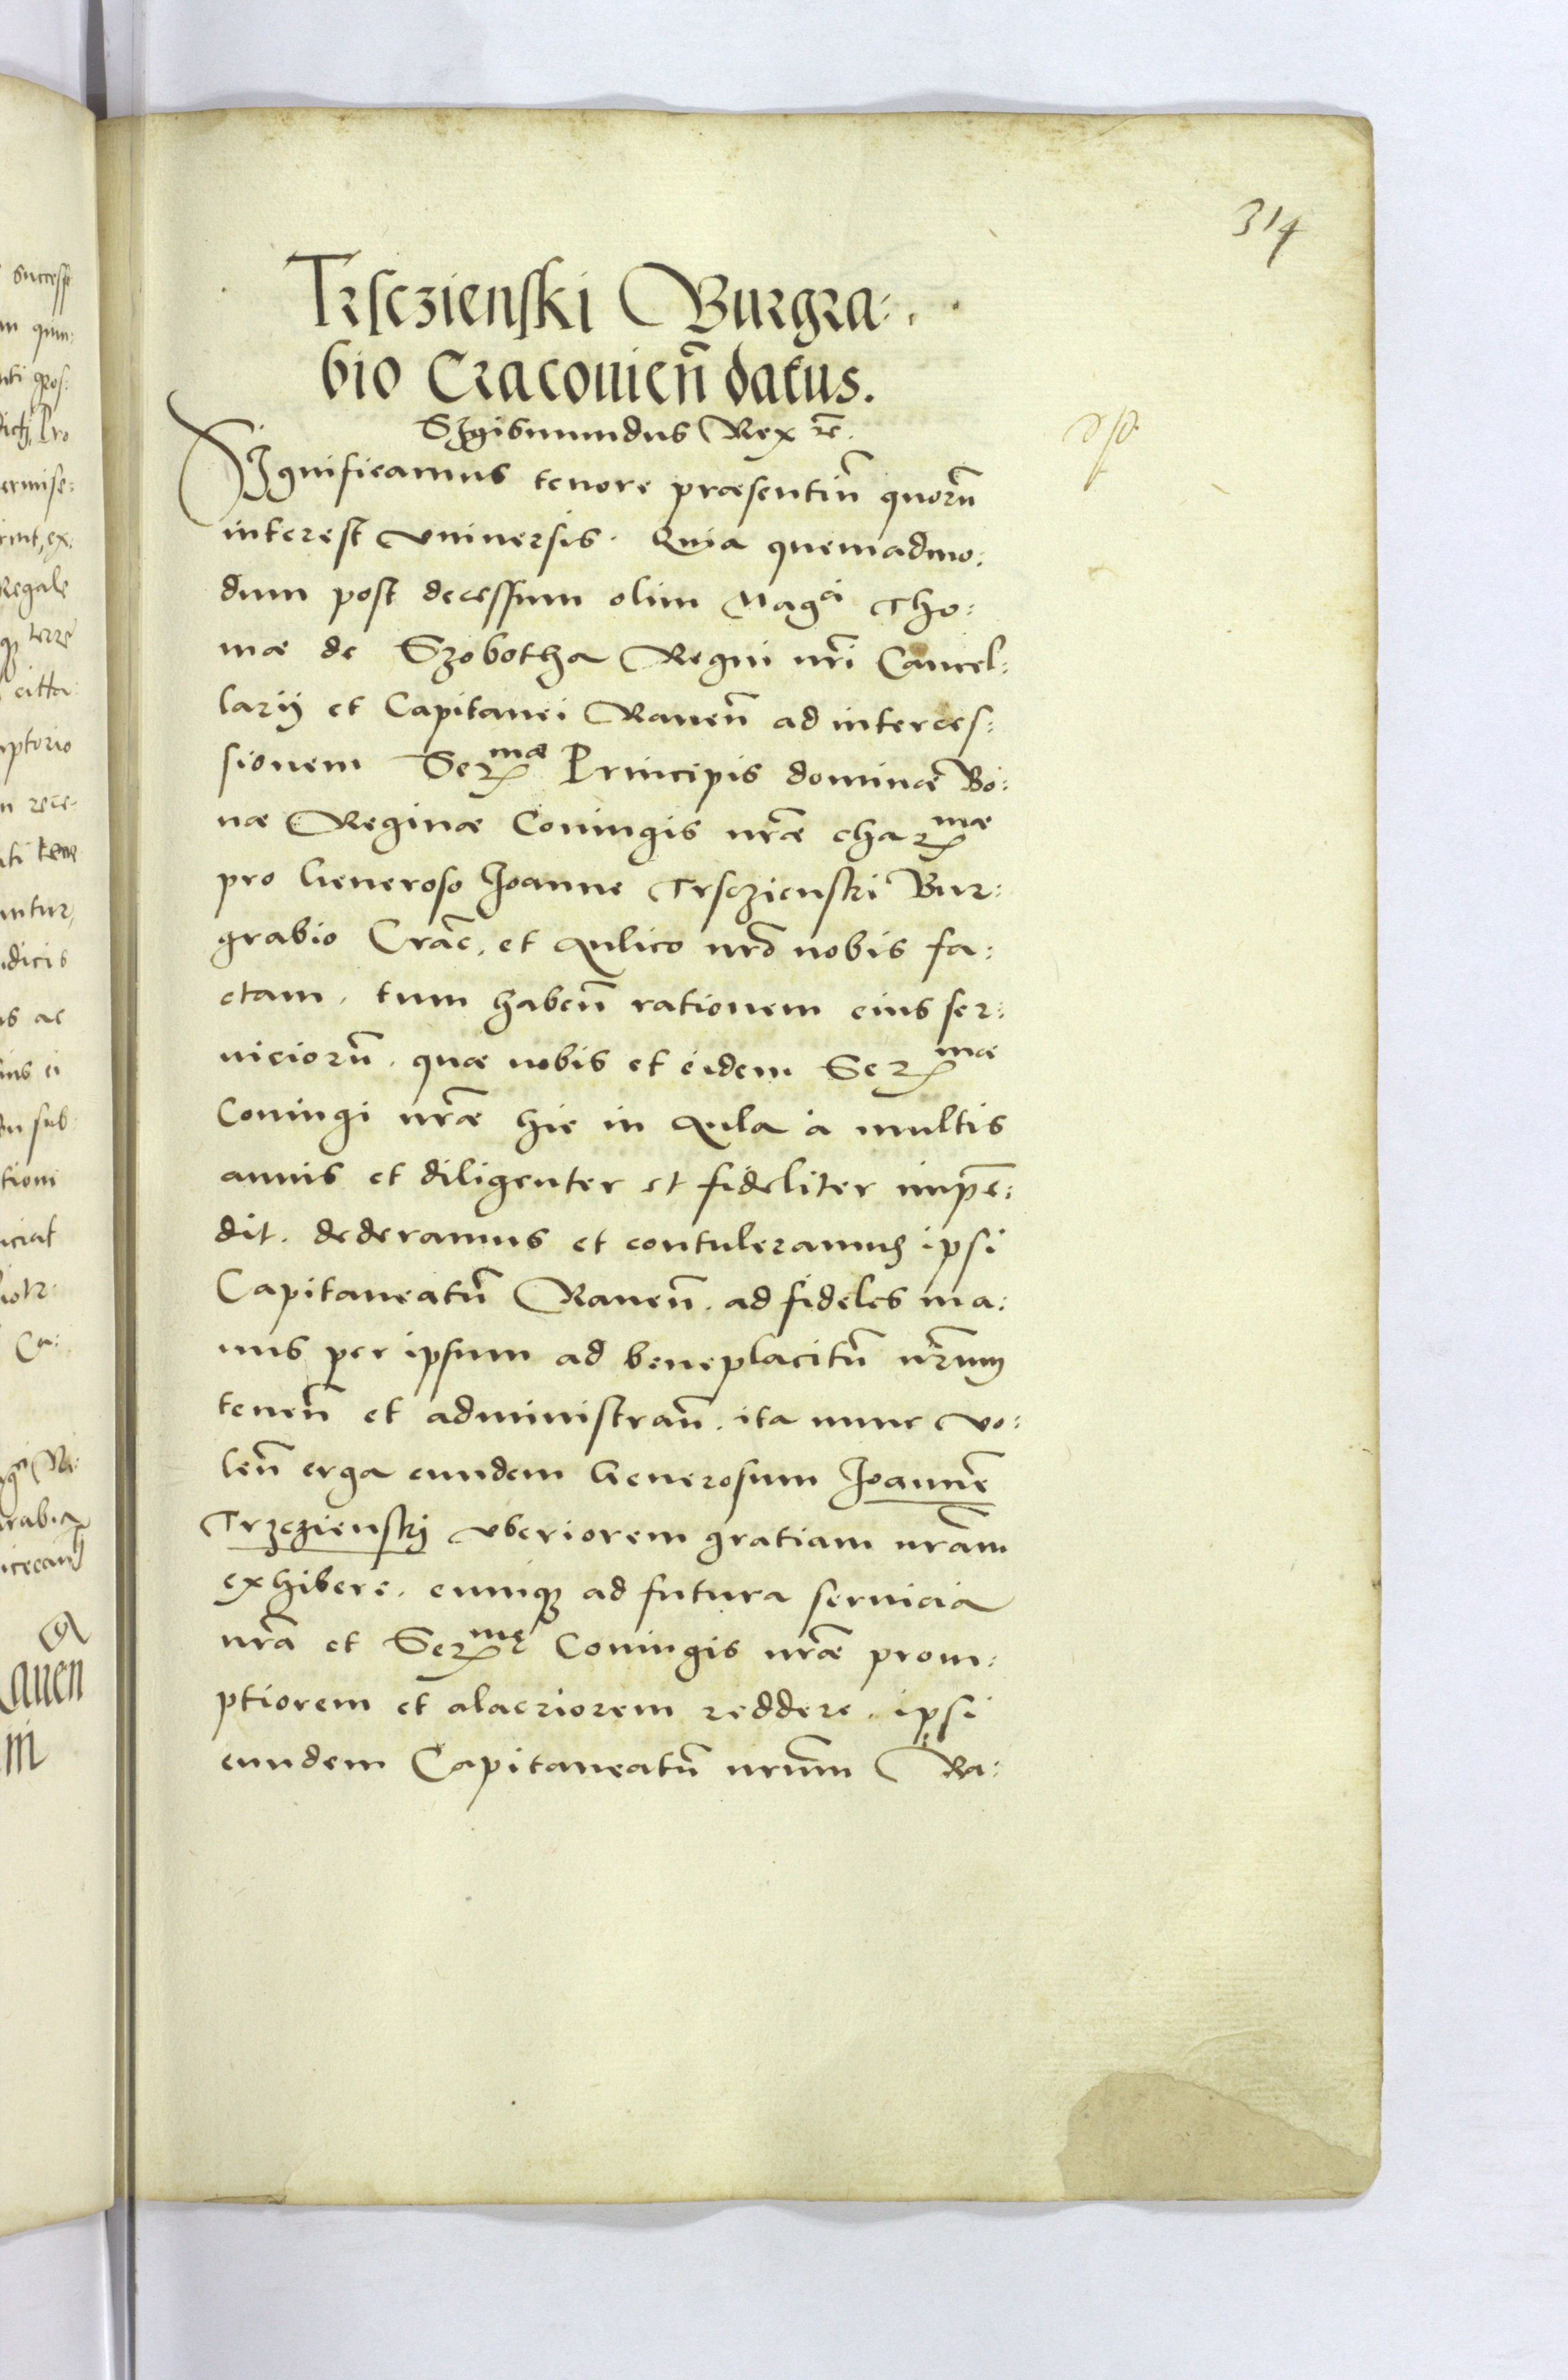 314
Trsczienski Burgra:
bio Cracouien̄ datus.
SIgismundus Rex rē.
SIgnificamus tenore præsentiū quorū
interest vniuersis. Quia quemadmo:
dum post decessum olim Mag^ci Tho:
mæ de Szobotha Regni nr̄i Cancel:
larij et Capitanei Rauen̄ ad interces:
sionem Ser^mæ Principis dominæ Bo:
næ Reginæ Coniugis nr̄æ char^mæ
pro Generoso Joanne Trsczienski Bur:
grabio Crac̄. et Aulico nr̄o nobis fa:
ctam. tum haben̄ rationem eius ser:
uiciorū. quæ nobis et eidem Ser^mæ
Coniugi nr̄æ hic in Aula à multis
annis et diligenter et fideliter impē:
dit. dederamus et contuleramus ipsi
Capitaneatū Rauen̄. ad fideles ma:
nus per ipsum ad beneplacitū nr̄um
tenen̄ et administran̄. ita nunc vo:
len̄ erga eundem Generosum Joannē
Trzczienskj vberiorem gratiam nr̄am
exhibere. eumqꝫ ad futura seruicia
nr̄a et Ser^mę Coniugis nr̄æ prom:
ptiorem et alacriorem reddere. ipsi
eundem Capitaneatū nr̄um Ra: